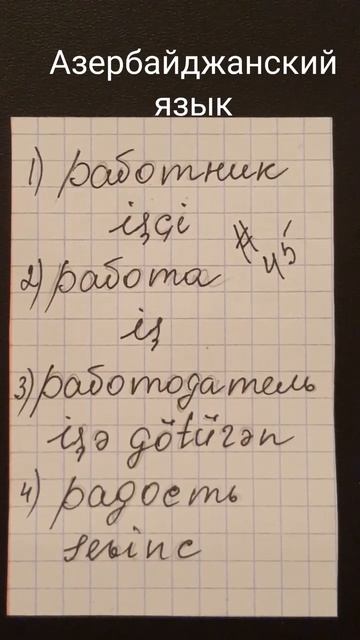 Азербайджанский
язык
1) работник
işçi
№ 45
2) работа
iş
3) работодатель
işə götürən
4) радость
sevinc